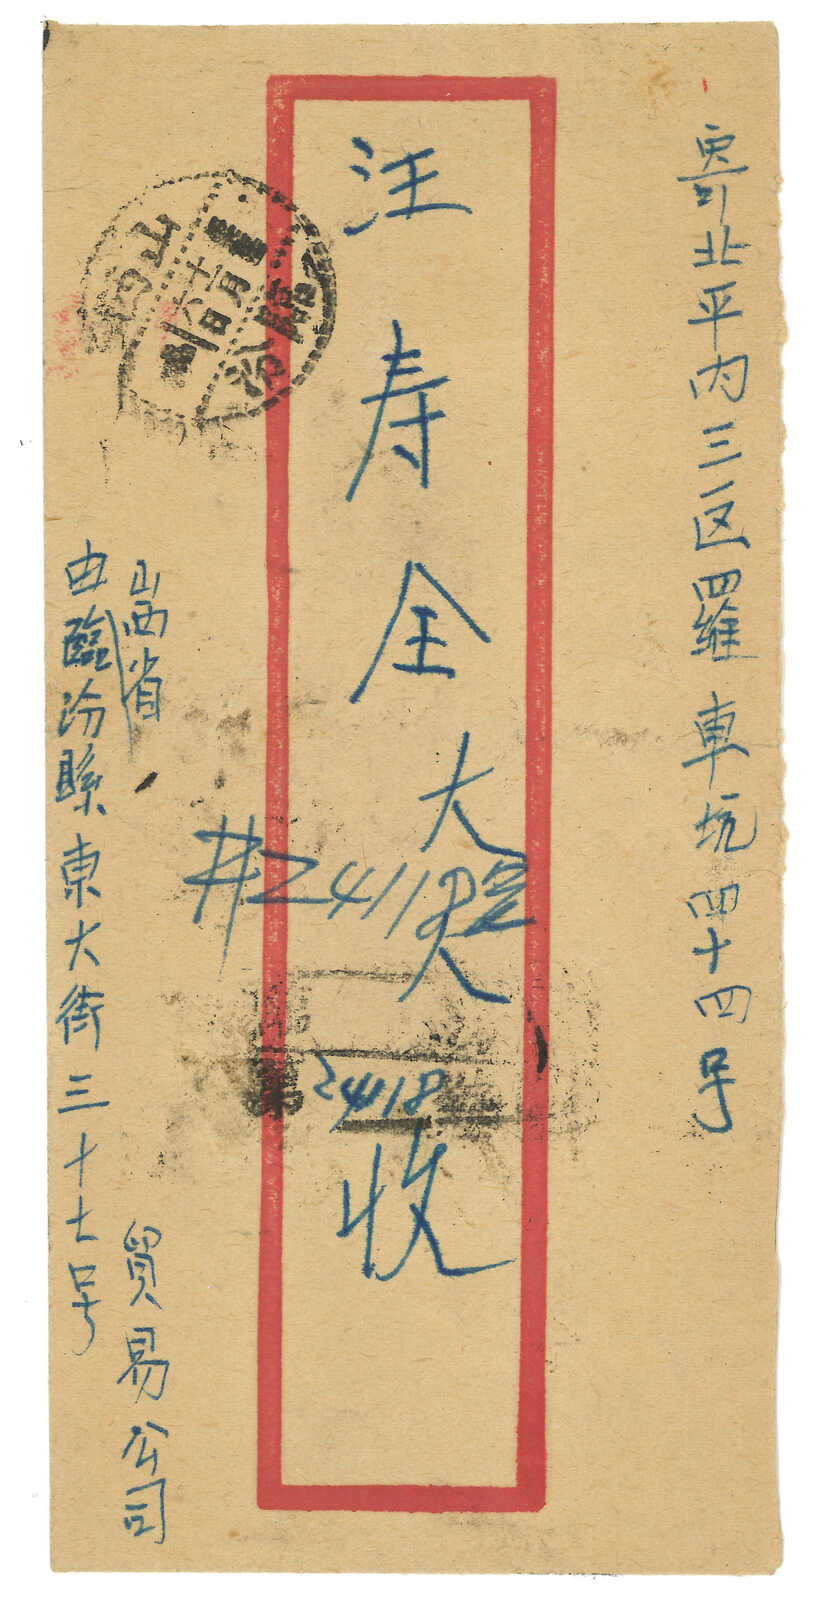 寄北平内三区羅車坑四十四号
汪寿全大人收
#2411
2418
山西省
由臨汾縣東大街三十七号
貿易公司
山西
臨汾